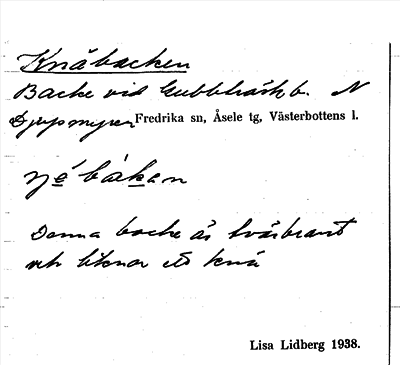 Knäbacken
Backe vid Gubbträskb. N
Djupmyran Fredrika sn, Åsele tg, Västerbottens l.
bàkan
Denna backe är tvärbrant
och liknar ett knä
Lisa Lidberg 1938.